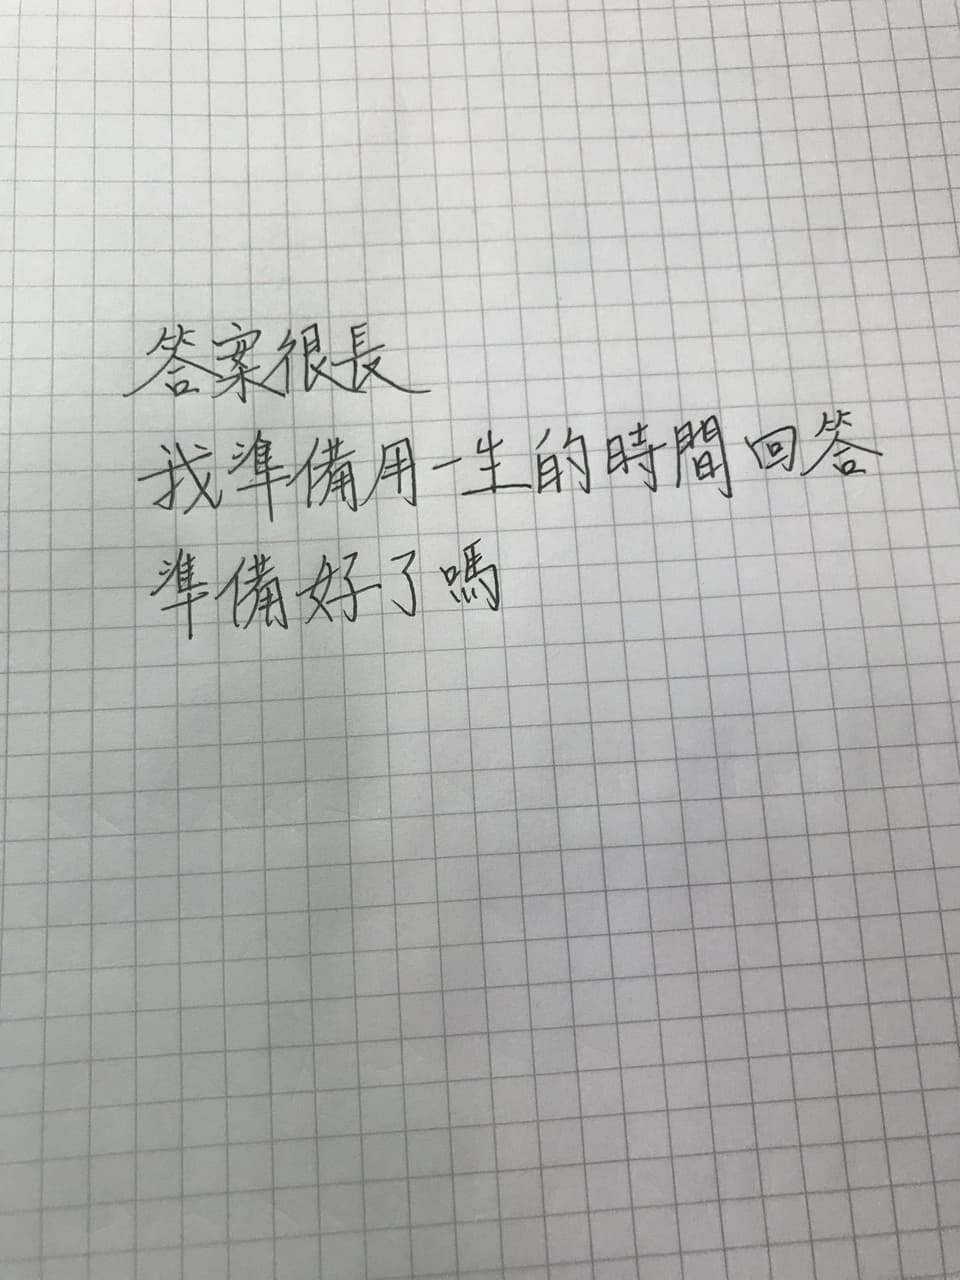 答案很長
我準備用一生的時間回答
準備好了嗎